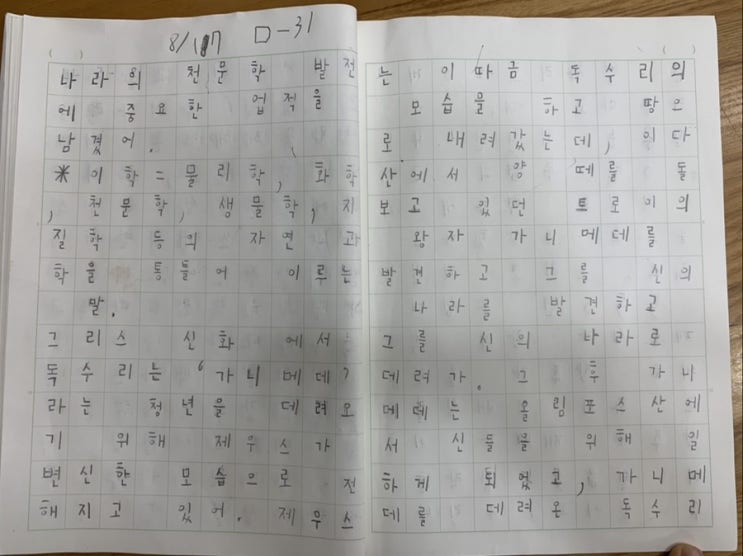 8/17 ㅁ-31
나라의 천문학 발전
에 중요한 업적을
남겼어.
*이학=물리학, 화학
, 천문학, 생물학, 지
질학 등의 자연과
학을 통틀어 이루는
말.
그리스 신화에서
독수리는 '가니메데'
라는 청년을 데려오
기 위해 제우스가
변신한 모습으로 전
해지고 있어. 제우스
는 이따금 독수리의
모습을 하고 땅으
로 내려갔는데, 이다
산에서 양떼를 돌
보고 있던 트로이의
왕자 가니메데를
발견하고 그를 신의
나라를 발견하고
그를 신의 나라로
데려가. 그 후 가니
메데는 올림포스산에
서 신들을 위해 일
하게 되었고, 가니메
데를 데려온 독수리